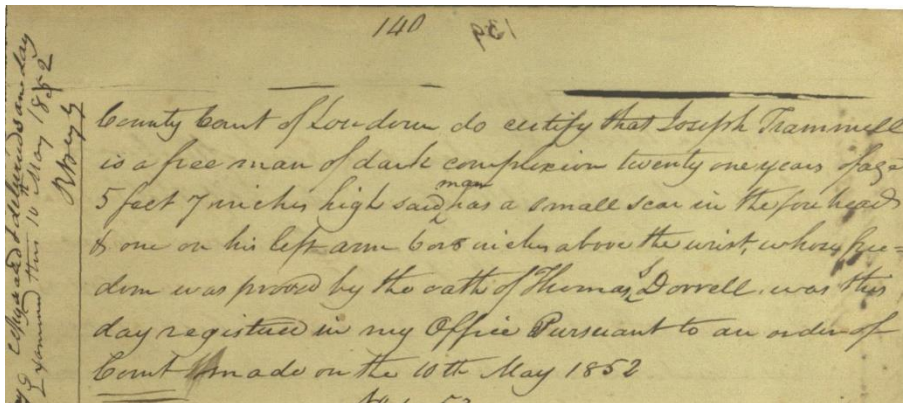 140 139
County Court of Loudoun do certify that Joseph Trammell
is a free man of dark complexion twenty one years of age
5 feet 7 inches high said man has a small scar in the forehead
& one on his left arm 6 or 8 inches above the wrist, whose free=
dom was proved by the oath of Thomas J Dorrell. was this
day registered in my Office Pursuant to an order of
Court made on the 10th May 1852
Copy and delivered same day
Examined this 10 May 1852